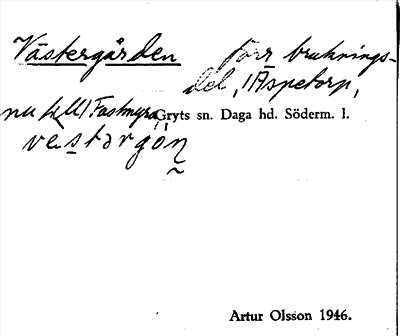 Västergården förr bruknings-
del, i Aspetorp,
nu u/ Fastmyra, Gryts sn. Daga hd. Söderm. l.
vestərgọṇ
Artur Olsson 1946.